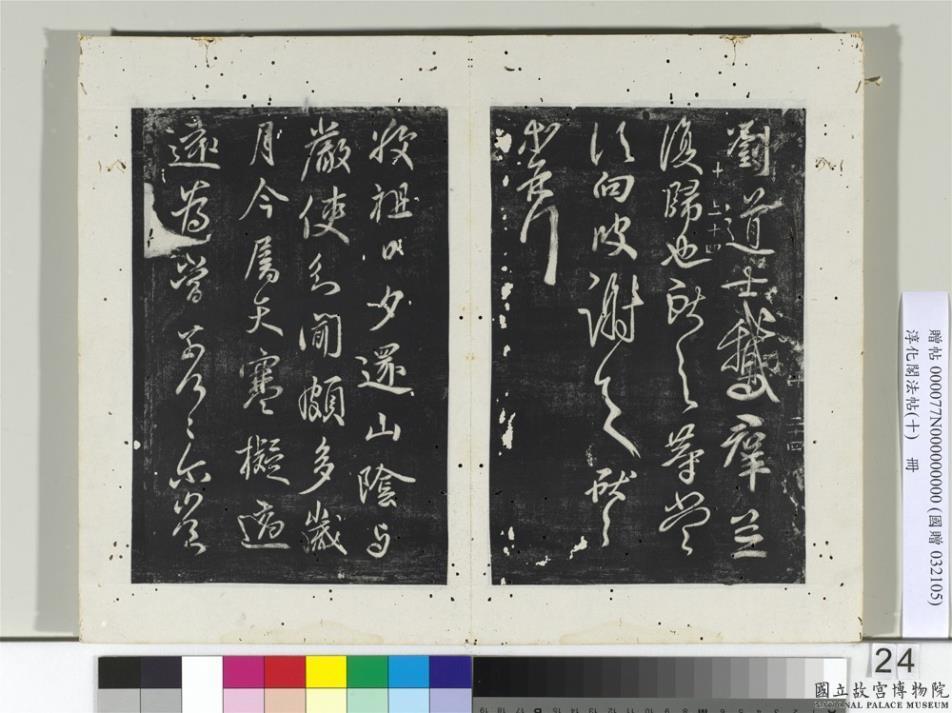 劉道士鵝群並
復歸也獻之等當
須向彼謝之獻之
等再拜
十 上十四
敬祖日夕還山陰與
嚴使君聞頗多歲
月今屬天寒擬適
遠為當奈何奈何爾豈
贈帖 000077N000000000 (國贈 032105)
淳化閣法帖(十) 冊
24
國立故宮博物院
NATIONAL PALACE MUSEUM